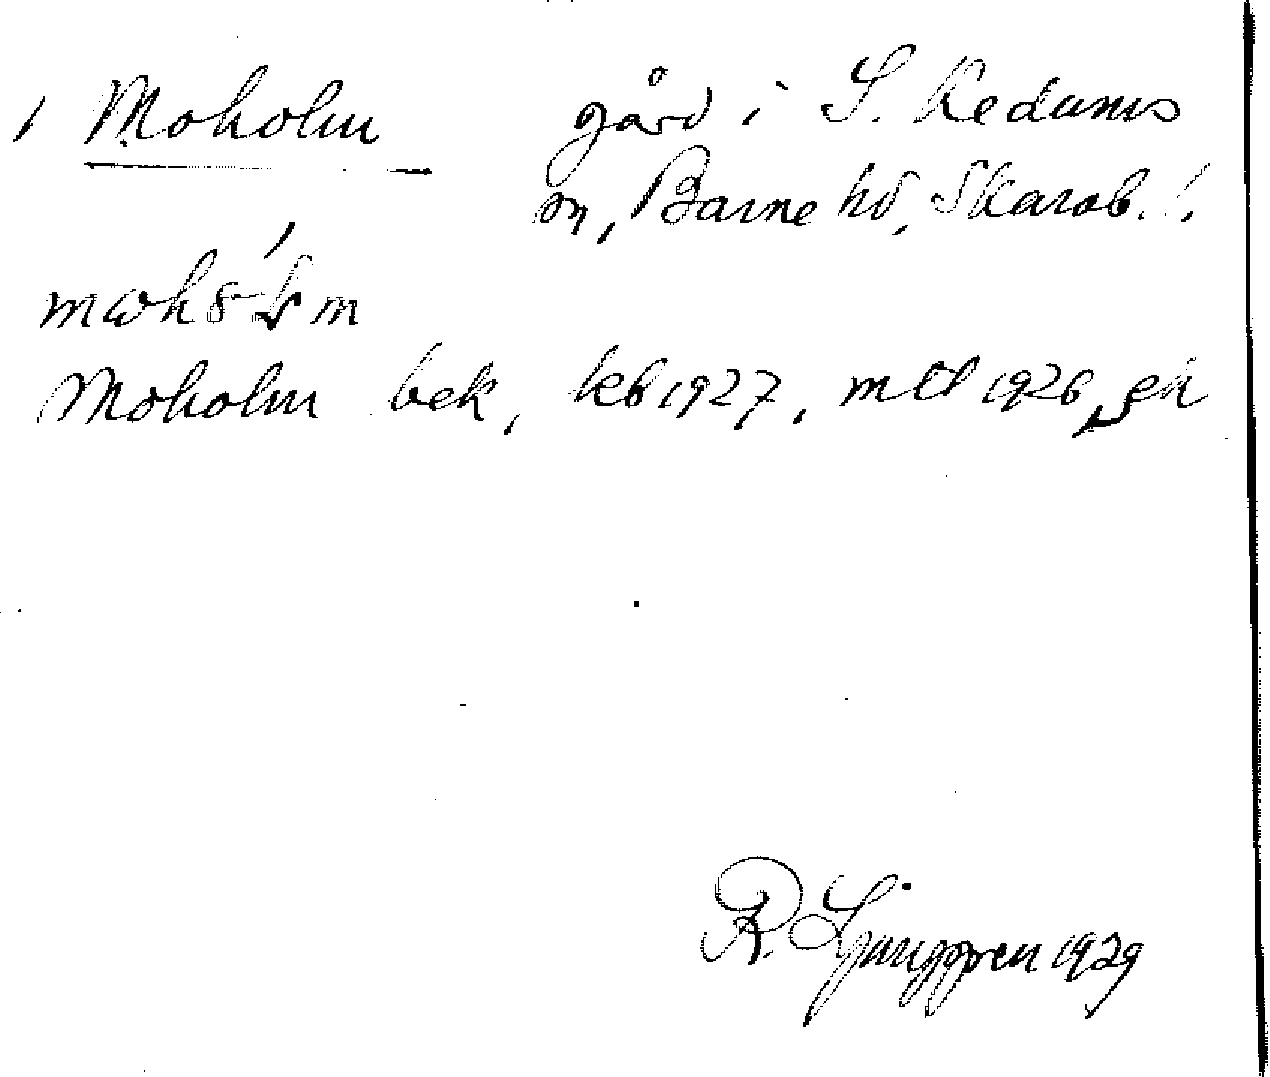 Moholm gård i S. Kedums
sn, Barne hd, Skarab. l.
Moholm bek, kb 1927, mtl 1926, gk
R. Ljunggren 1929